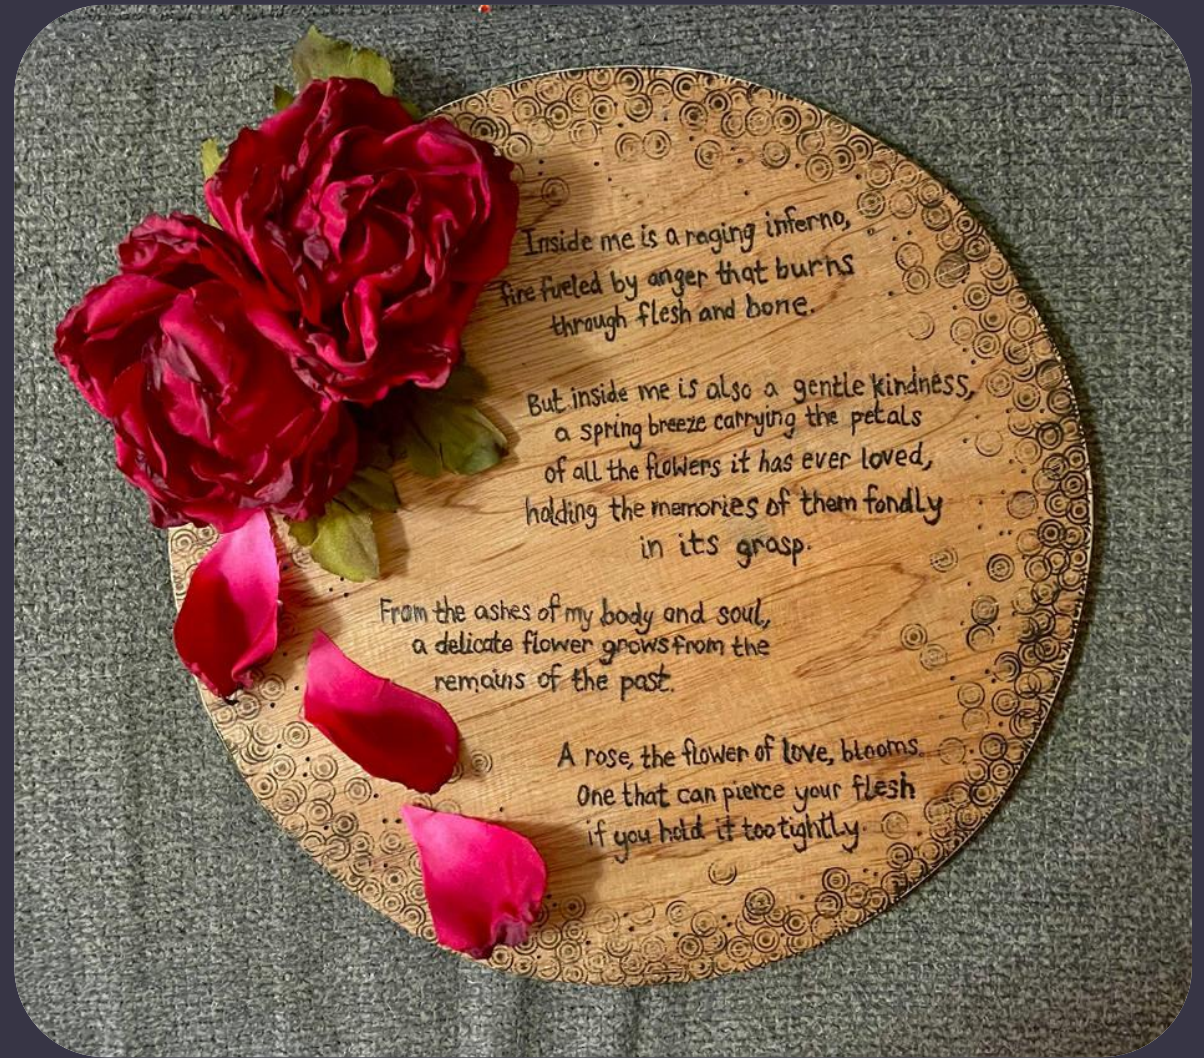 Inside me is a raging inferno,
fire fueled by anger that burns
through flesh and bone.
But inside me is also a gentle kindness,
a spring breeze carrying the petals
of all the flowers it has ever loved,
holding the memories of them fondly
in its grasp.
From the ashes of my body and soul,
a delicate flower grows from the
remains of the past.
A rose, the flower of love, blooms.
One that can pierce your flesh
if you hold it too tightly.